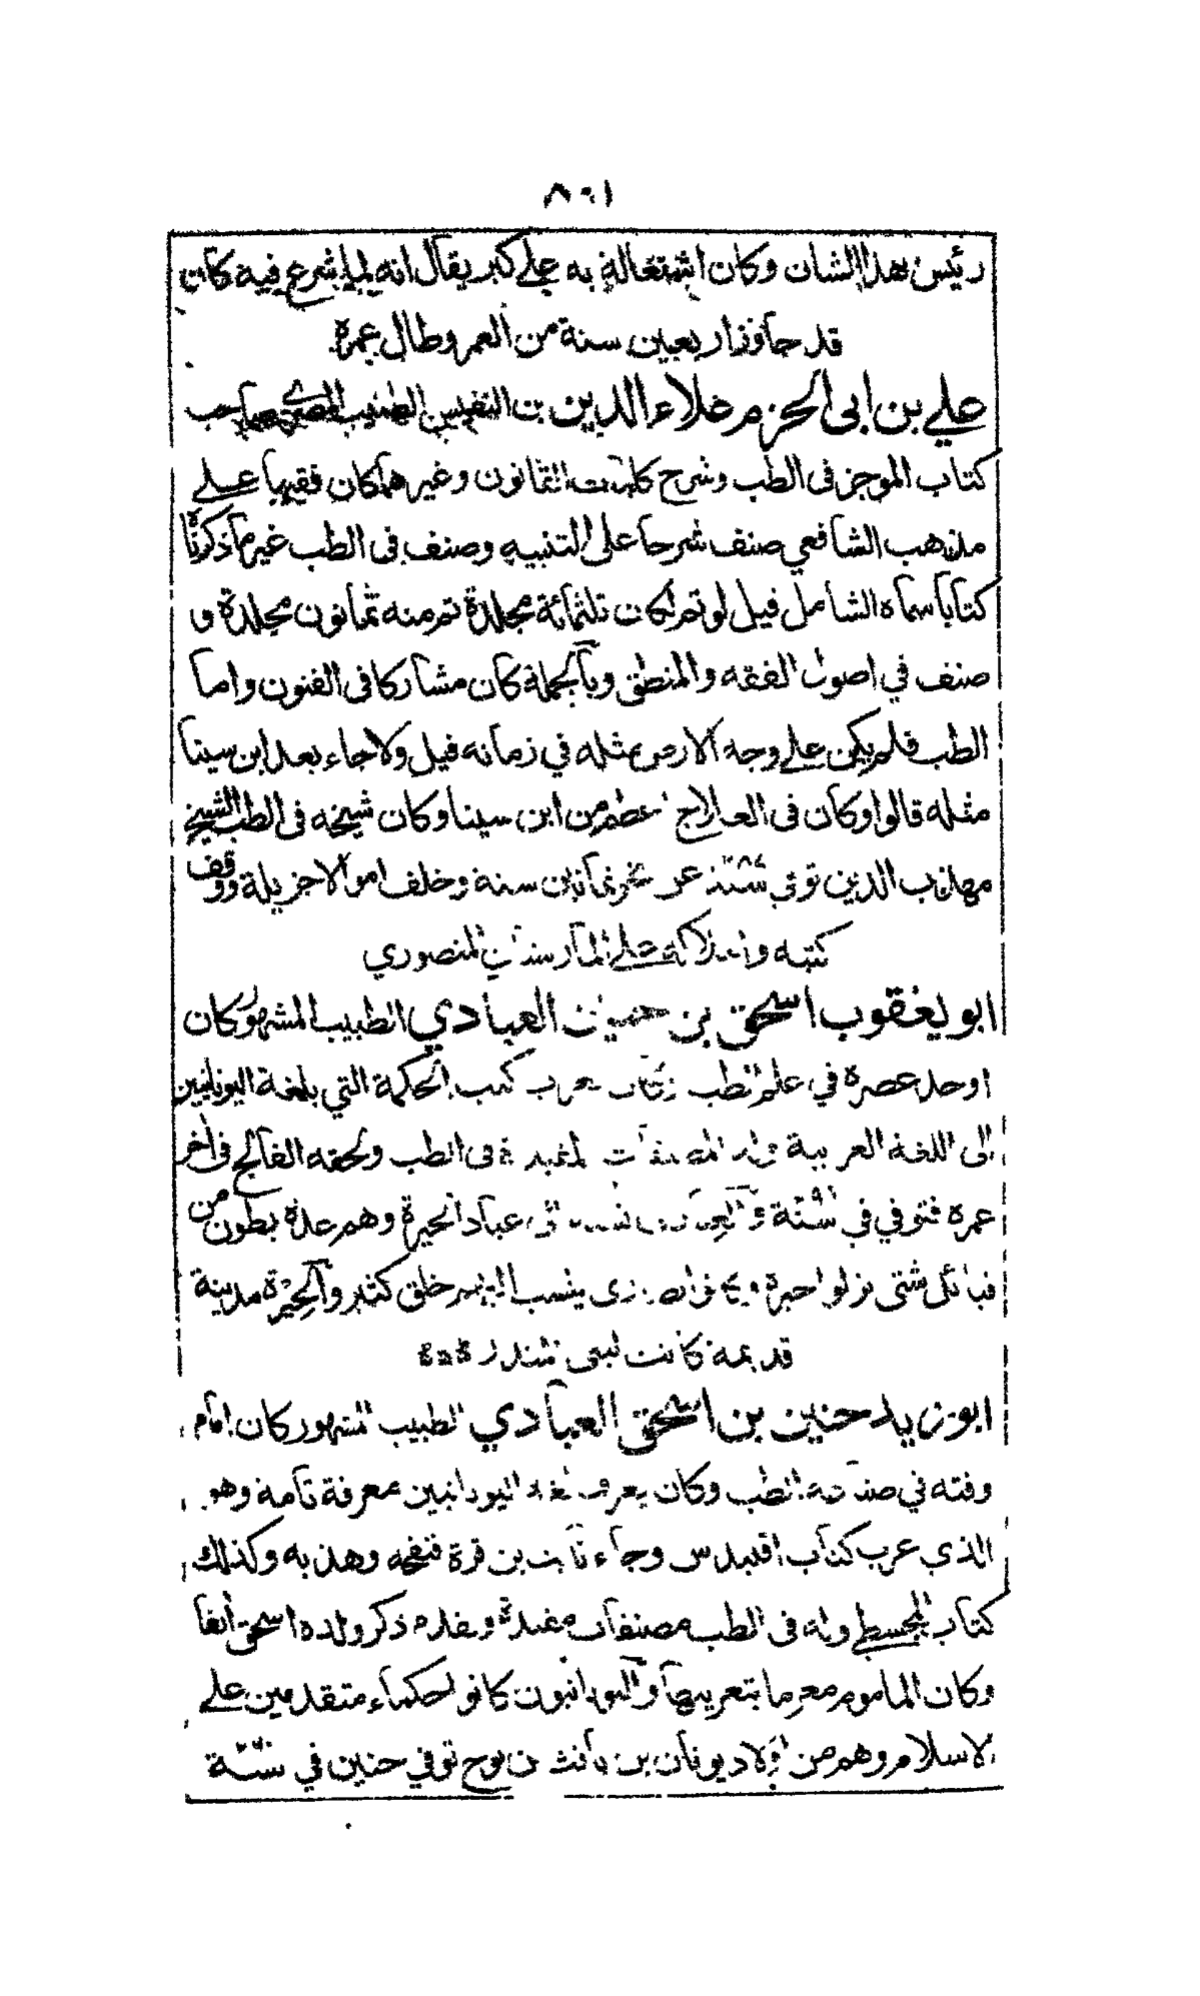 ٨٠١
رئيس هذا الشان وكان اشتغاله به على كبر يقال انه لما شرع فيه كان
قد جاوز اربعين سنة من العمر وطال عمره
علي بن ابى الحزم علاء الدين بن النفيس الطبيب المصري صاحب
كتاب الموجز فى الطب وشرح كليات القانون وغيرهما كان فقيها على
مذهب الشافعي صنف شرحا على التنبيه وصنف فى الطب غير ما ذكرنا
كتابا سماه الشامل قيل لو تم لكان ثلثمائة مجلدة تم منه ثمانون مجلدة و
صنف في اصول الفقه والمنطق وبالجملة كان مشاركا فى الفنون واما
الطب فلم يكن على وجه الارض مثله في زمانه قيل ولا جاء بعد ابن سينا
مثله قالوا وكان فى العلاج اعظم من ابن سينا وكان شيخه فى الطب الشيخ
مهذب الدين توفي عن نحو ثمانين سنة وخلف اموالا جزيلة ووقف
كتبه واملاكه على المارستان المنصوري
ابو يعقوب اسحق بن حنين العبادي الطبيب المشهور كان
اوحد عصره في علم الطب وكان يعرب كتب الحكمة التي بلغة اليونانيين
الى اللغة العربية وله المصنفات المفيدة فى الطب ولحقه الفالج فى اخر
عمره فتوفي في سنة والعبادي نسبة الى عباد الحيرة وهم عدة بطون من
قبائل شتى نزلوا الحيرة وكانوا نصارى ينسب اليهم خلق كثير والحيرة مدينة
قديمة كانت لبنى المنذر
ابو زيد حنين بن اسحق العبادي الطبيب المشهور كان امام
وقته في صناعة الطب وكان يعرف لغة اليونانيين معرفة تامة وهو
الذي عرب كتاب اقليدس وجاء ثابت بن قرة فنقحه وهذبه وكذلك
كتاب المجسطي وله فى الطب مصنفات مفيدة وتقدم ذكر ولده اسحق انفا
وكان المامون مغرما بتعريبها واليونانيون كانوا حكماء متقدمين على
الاسلام وهم من اولاد يونان بن يافث بن نوح توفي حنين في سنة